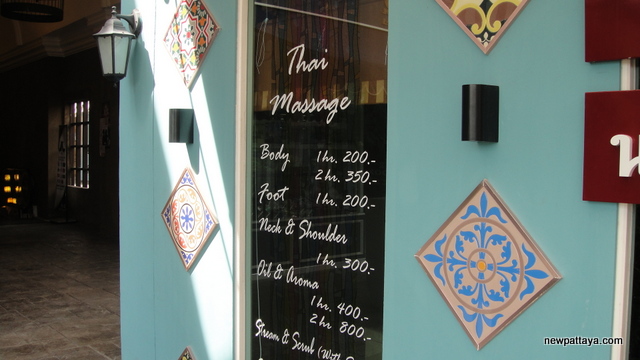 Thai
Massage
Body 1 hr. 200.-
2 hr. 350.-
Foot 1 hr. 200.-
Neck & Shoulder
1 hr. 300.-
Oil & Aroma
1 hr. 400.-
2 hr. 800.-
Steam & Scrub
newpattaya.com